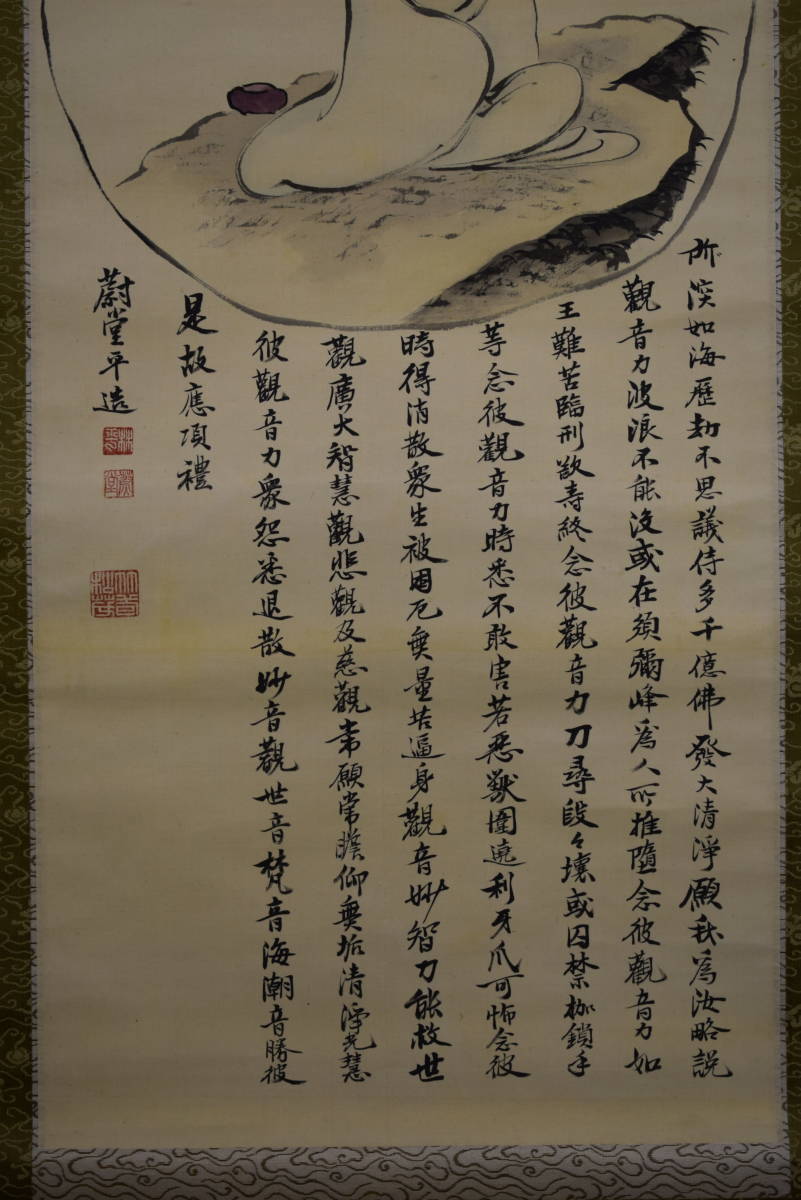 所深如海歴劫不思議侍多千億佛發大清淨願我為汝略説
觀音力波浪不能没或在須彌峰為人所推墮念彼觀音力如
王難苦臨刑欲壽終念彼觀音力刀尋段々壞或囚禁枷鎖手
等念彼觀音力時悉不敢害若惡獣圍遶利牙爪可怖念彼
時得消散衆生被困厄無量苦逼身觀音妙智力能救世
觀廣大智慧觀悲觀及慈觀常願常瞻仰無垢清淨光慧
彼觀音力衆怨悉退散妙音觀世音梵音海潮音勝彼
是故應頂禮
蔚堂平造